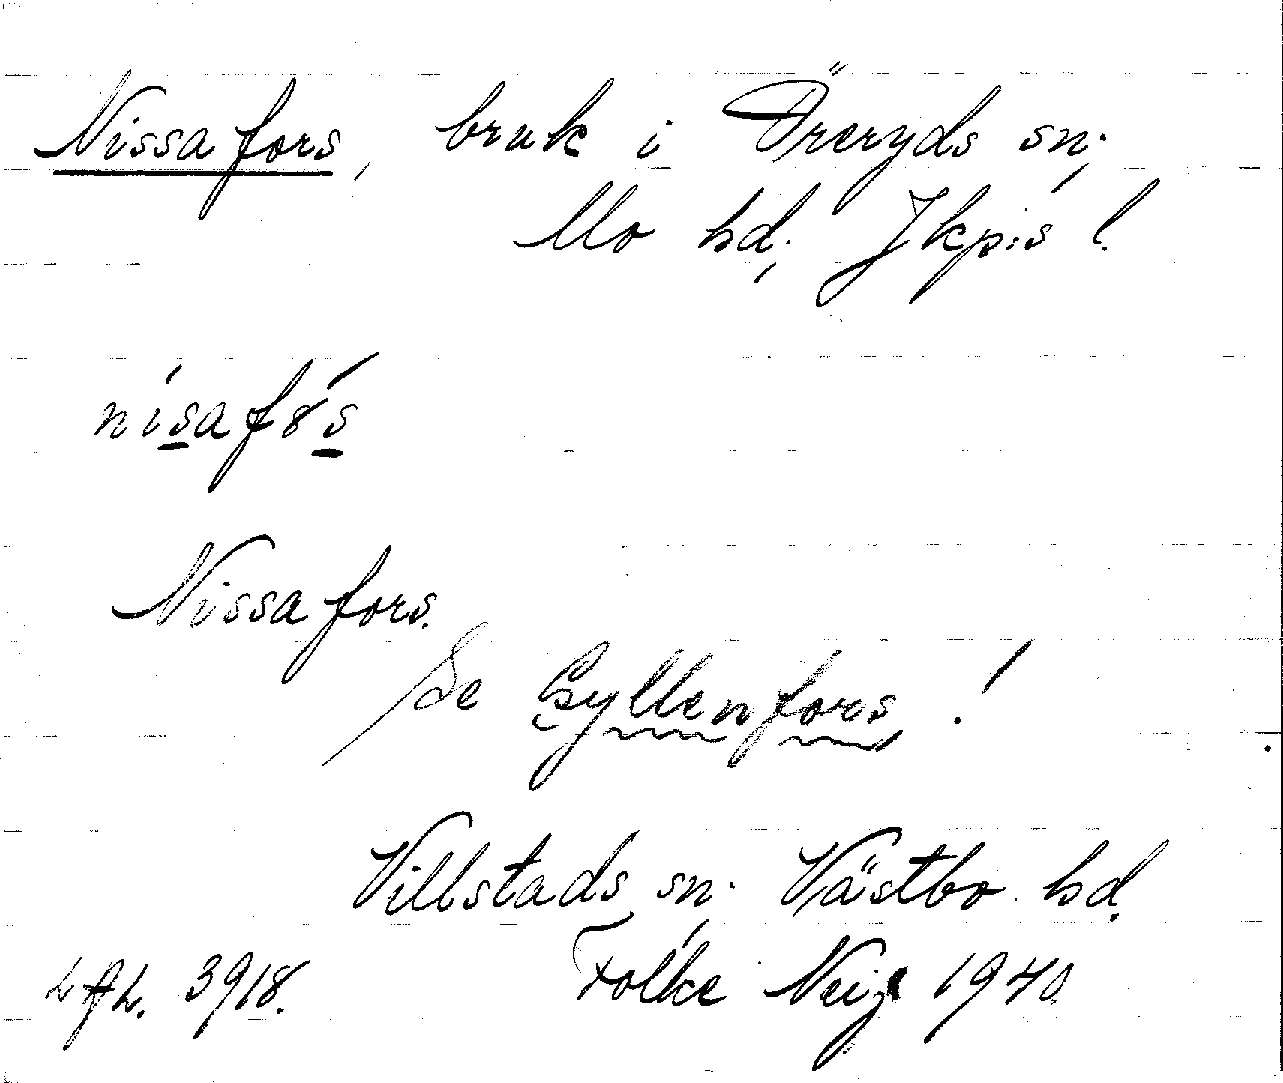 Nissafors, bruk i Öreryds sn.,
Mo hd., Jkp:s l.
nísafó́s
Nissafors.
Se Gyllenfors!
Villstads sn., Västbo hd.
Folke 1940.
3918.